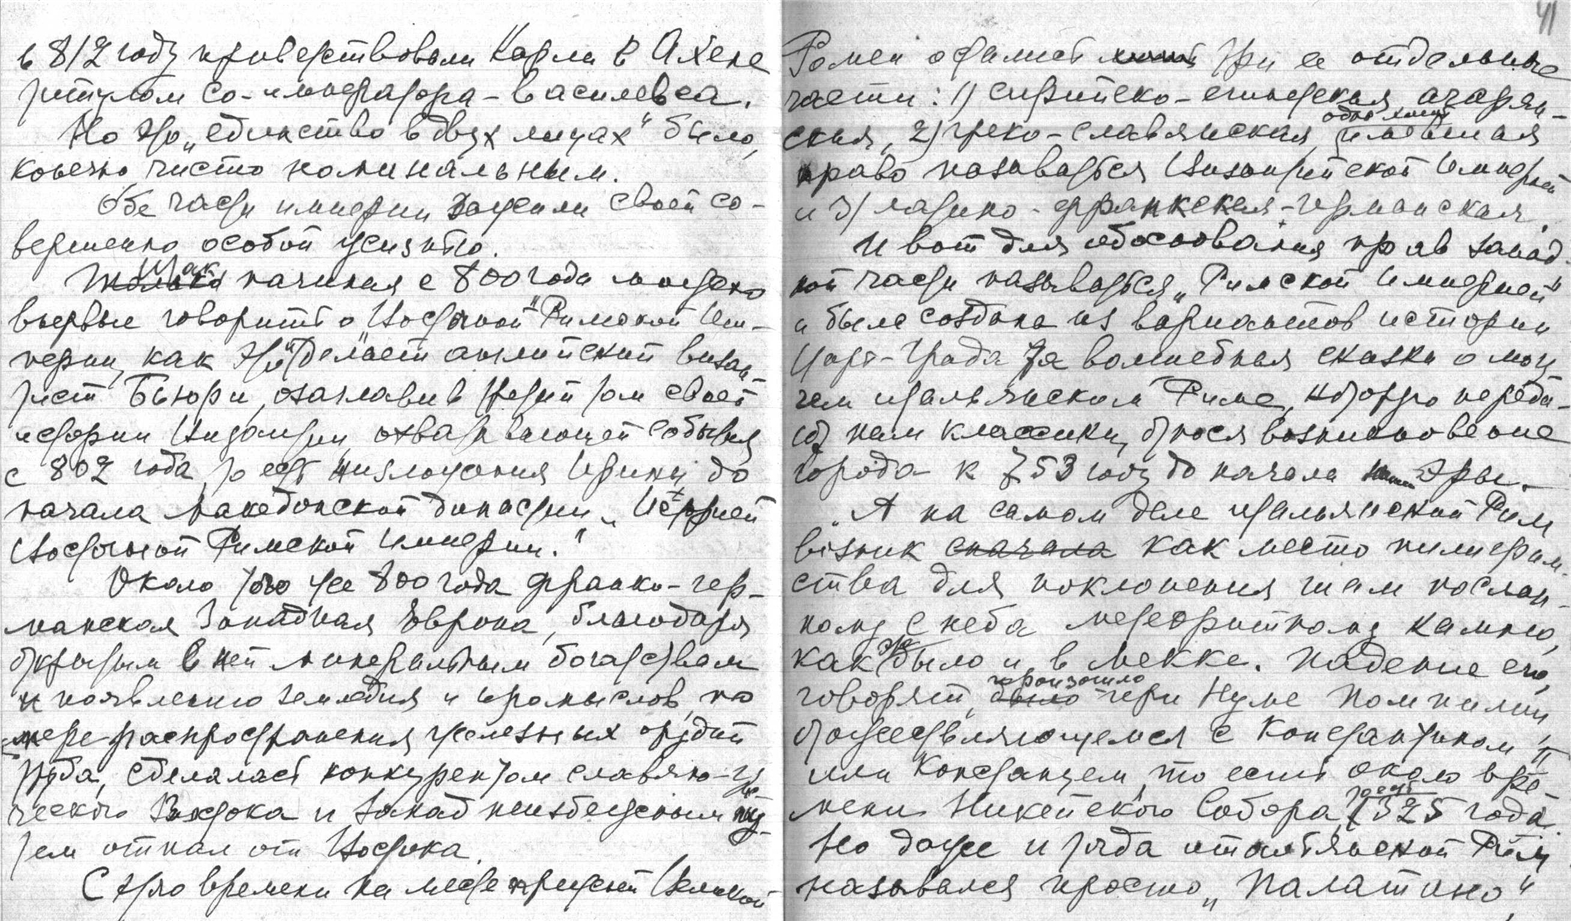 в 812 году приветствовали Карла в Ахене
титулом со-императора-василевса.
Но это „единство в двух лицах" было,
конечно чисто номинальным.
Обе части империи зажили своей со-
вершенно особой жизнью.
Так начиная с 800 года можно
впервые говорить о „Восточной" Римской Им-
перии, как это и делает английский визан-
тист Бьюри, озаглавив третий том своей
истории Византии охватывающей события
с 802 года, то есть низложения Ирины до
начала македонской династии „Историей
Восточной Римской Империи."
Около того же 800 года франко-гер-
манская Западная Европа, благодаря
открытым в ней минеральным богатствам
и появлению земледелия и промыслов, по
мере распространения железных орудий
труда, сделалась конкурентом славяно-гре-
ческого Востока и Запад неизбежным пу-
тем отпал от Востока.
С этого времени на месте прежней Великой
41
Ромеи остались три ее отдельные
части: 1) сирийско-египетская, агарян-
ская, 2) греко-славянская, одна лишь имевшая
право называться Византийской Империей
и 3) латино-франкская-германская.
И вот для обоснования прав запад-
ной части называться „Римской Империей"
и была создана из вариантов истории
Царь-Града та волшебная сказка о могу-
чем итальянском Риме, которую переда-
ют нам классики, относя возникновение
города к 753 году до начала нашей эры.
А на самом деле итальянский Рим
возник сначала как место пилигрим-
ства для поклонения там послан-
ному с неба метеоритному камню,
как это было и в Мекке. Падение его,
говорят, произошло при Нуме Помпилии,
отождествляющемся с Константином II
или Констанцем, то есть около вре-
мени Никейского Собора, то есть 325 года.
Но даже и тогда итальянский Рим
назывался просто „Палатино"